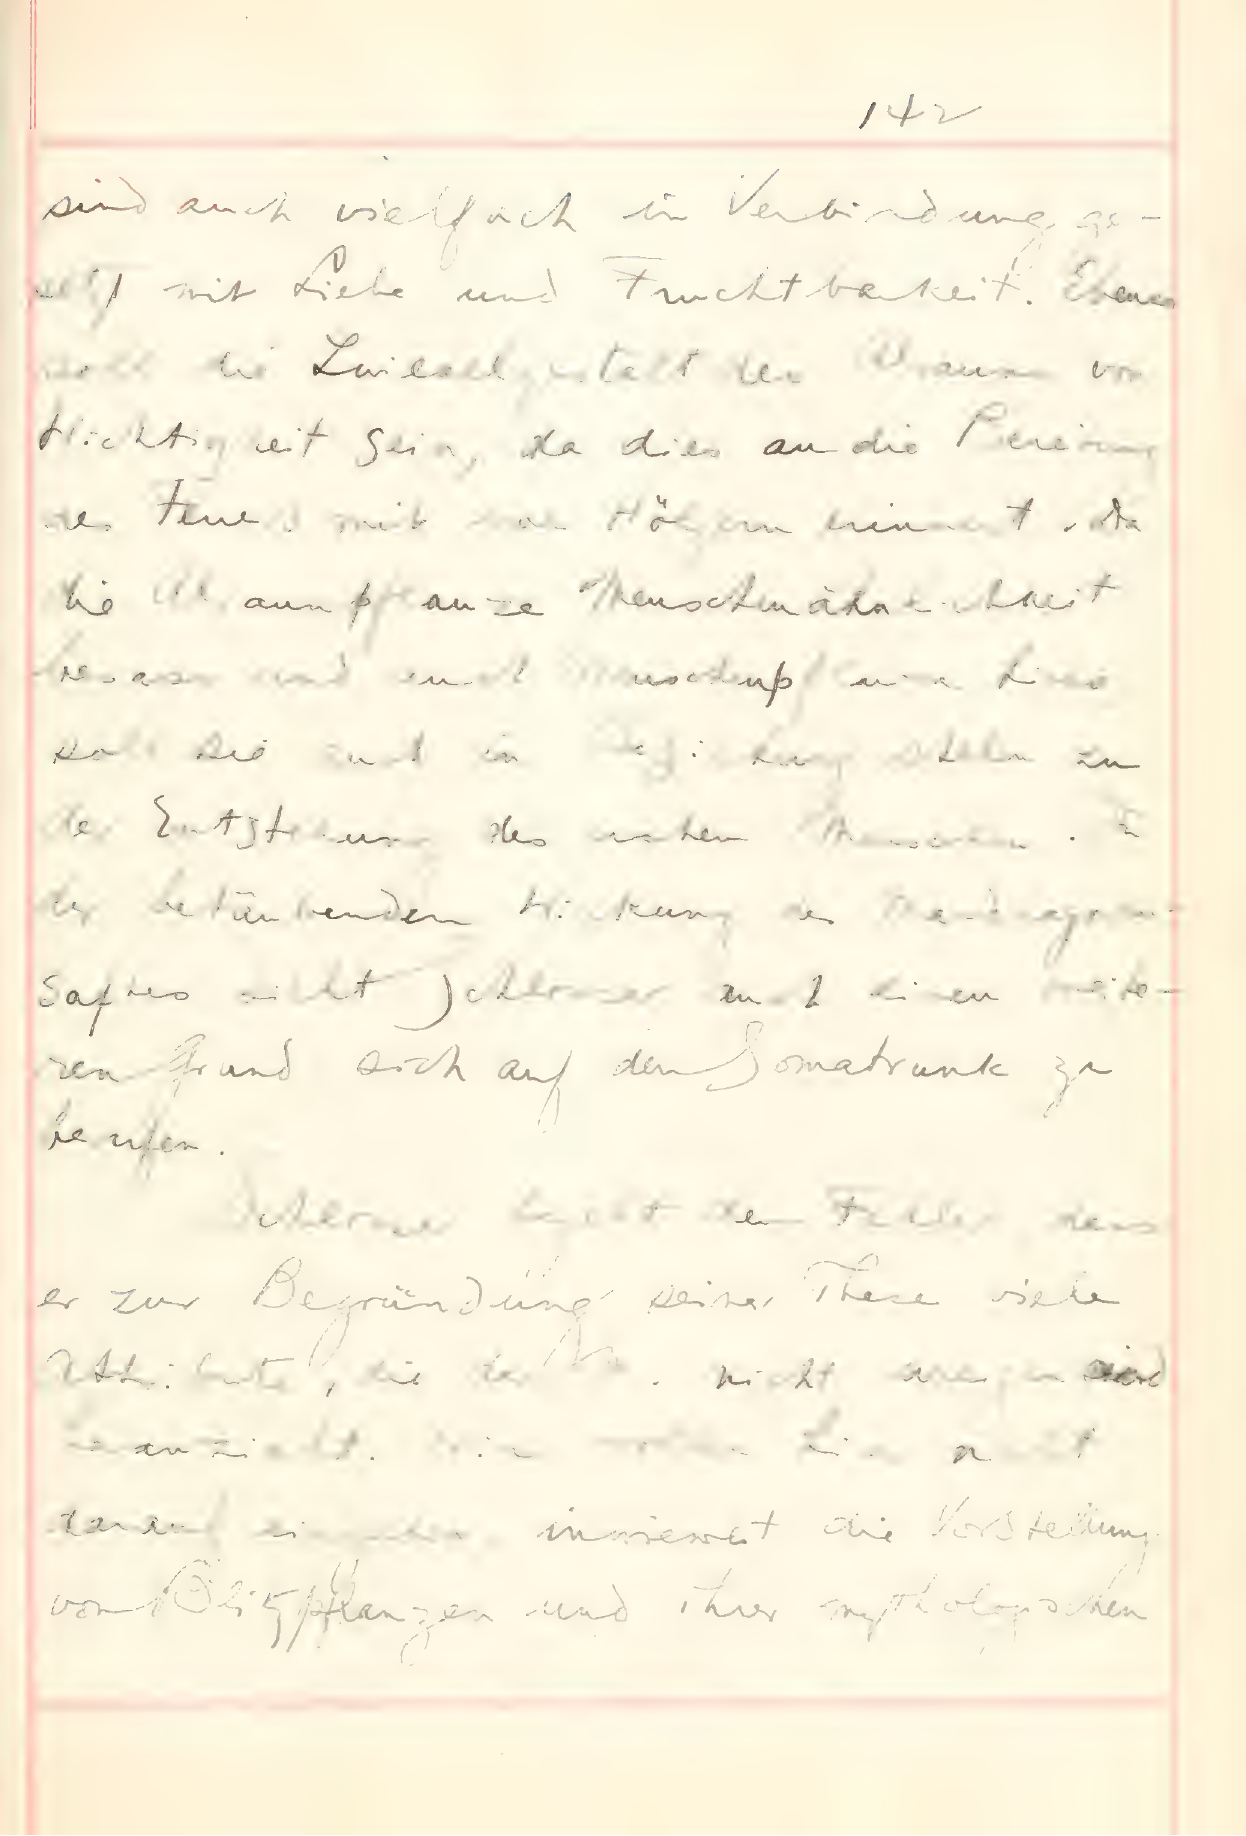 142
sind auch vielfach in Verbindung ge-
setzt mit Liebe und Fruchtbarkeit. Ebenso
soll die Zwieselgestalt des Alrauns von
Wichtigkeit sein, da dies an die Bereitung
des Feuers mit den Hölzern erinnert. Da
die Alraunpflanze Menschenähnlichkeit
besass und auch
soll sie auch in Beziehung stehen zu
der Entstehung des ersten Menschen. In
der betäubenden Wirkung des Mandragora-
saftes sieht Schlosser auch einen weite-
ren Grund sich auf den Somatrunk zu
berufen.
Schlosser begeht den Fehler, dass
er zur Begründung seiner These viele
Attribute, die der M. nicht eigen sind
heranzieht. Wir wollen hier nicht
darauf eingehen, inwieweit die Vorstellung
von Blitzpflanzen und ihrer mythologischen